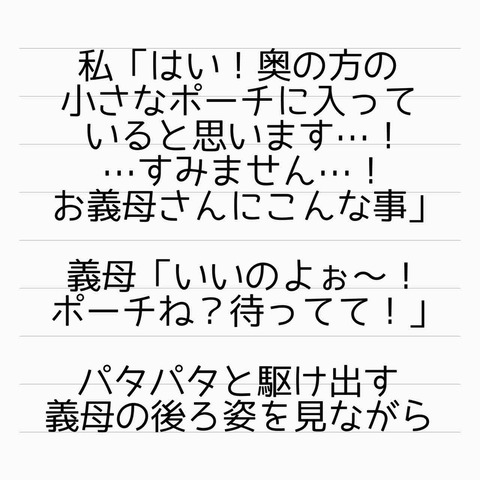 私「はい！奥の方の
小さなポーチに入って
いると思います…！
…すみません…！
お義母さんにこんな事」
義母「いいのよぉ〜！
ポーチね？待ってて！」
パタパタと駆け出す
義母の後ろ姿を見ながら